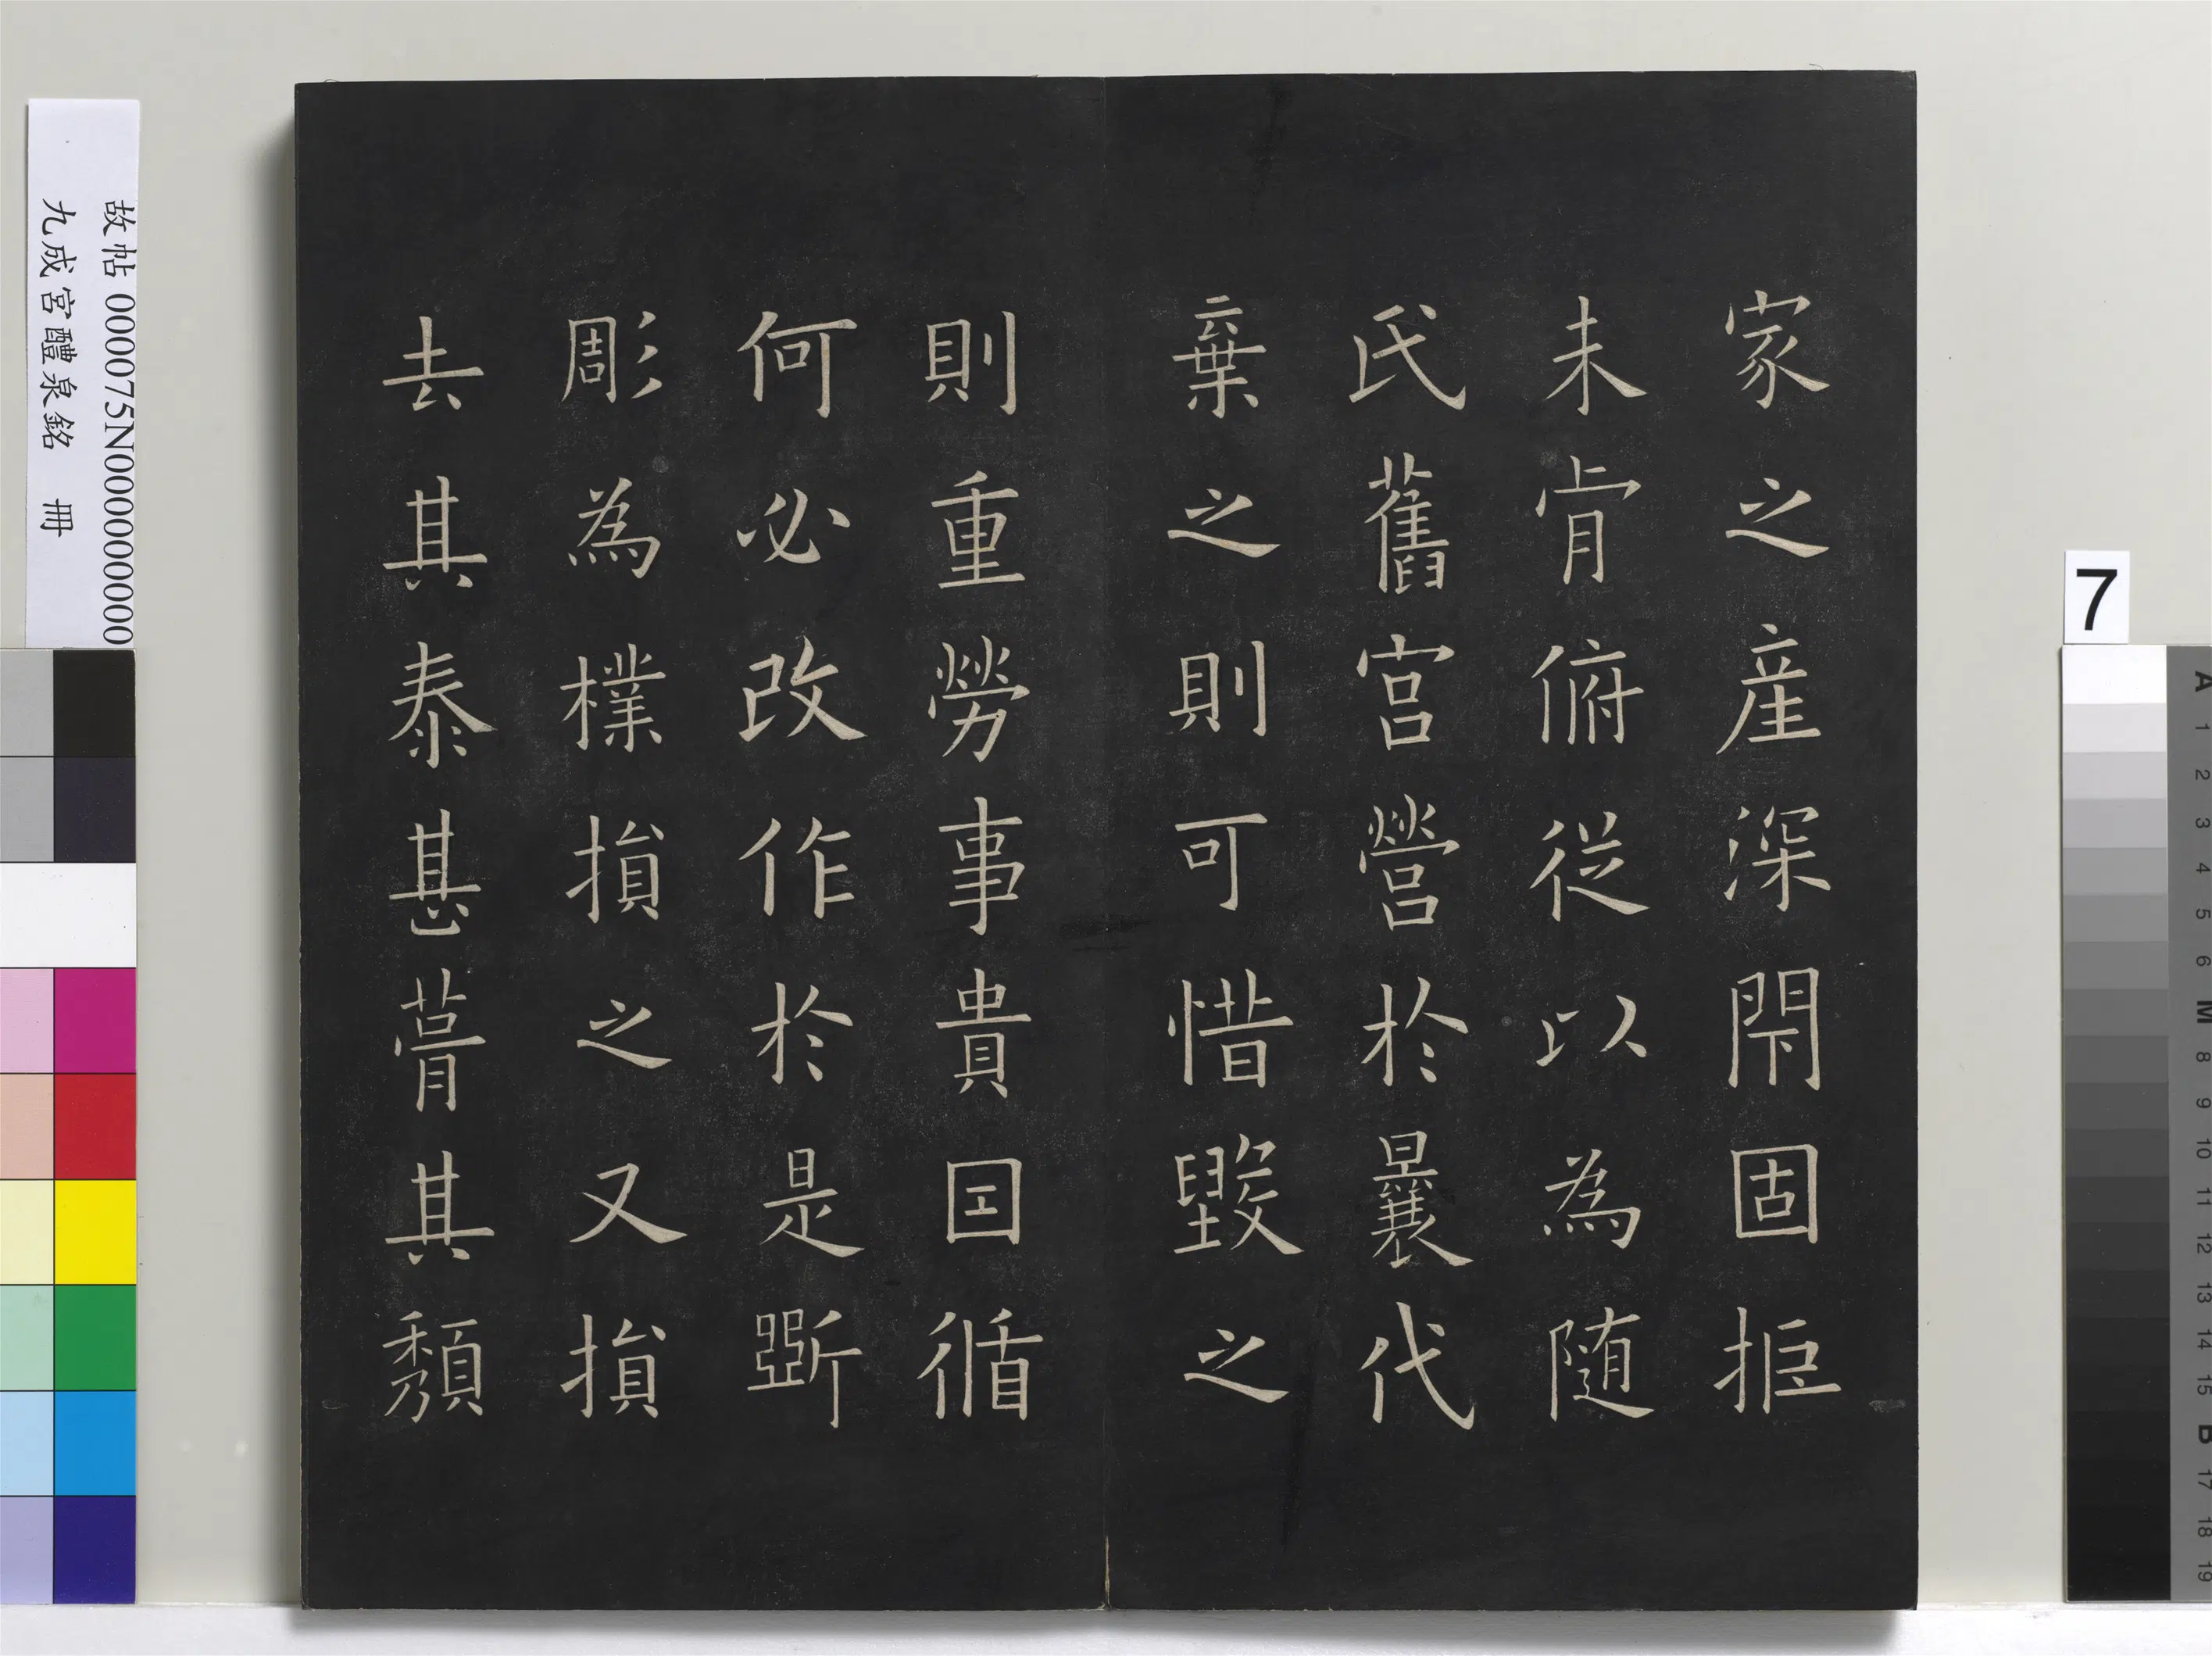 家之產深閇固拒
未肯俯從以為隨
氏舊宮營於曩代
棄之則可惜毀之
則重勞事貴因循
何必改作於是斲
彫為樸損之又損
去其泰甚葺其頹
故帖 000075N000000000
九成宮醴泉銘 冊
7
A
1
2
3
4
5
6
M
8
9
10
11
12
13
14
15
B
17
18
19